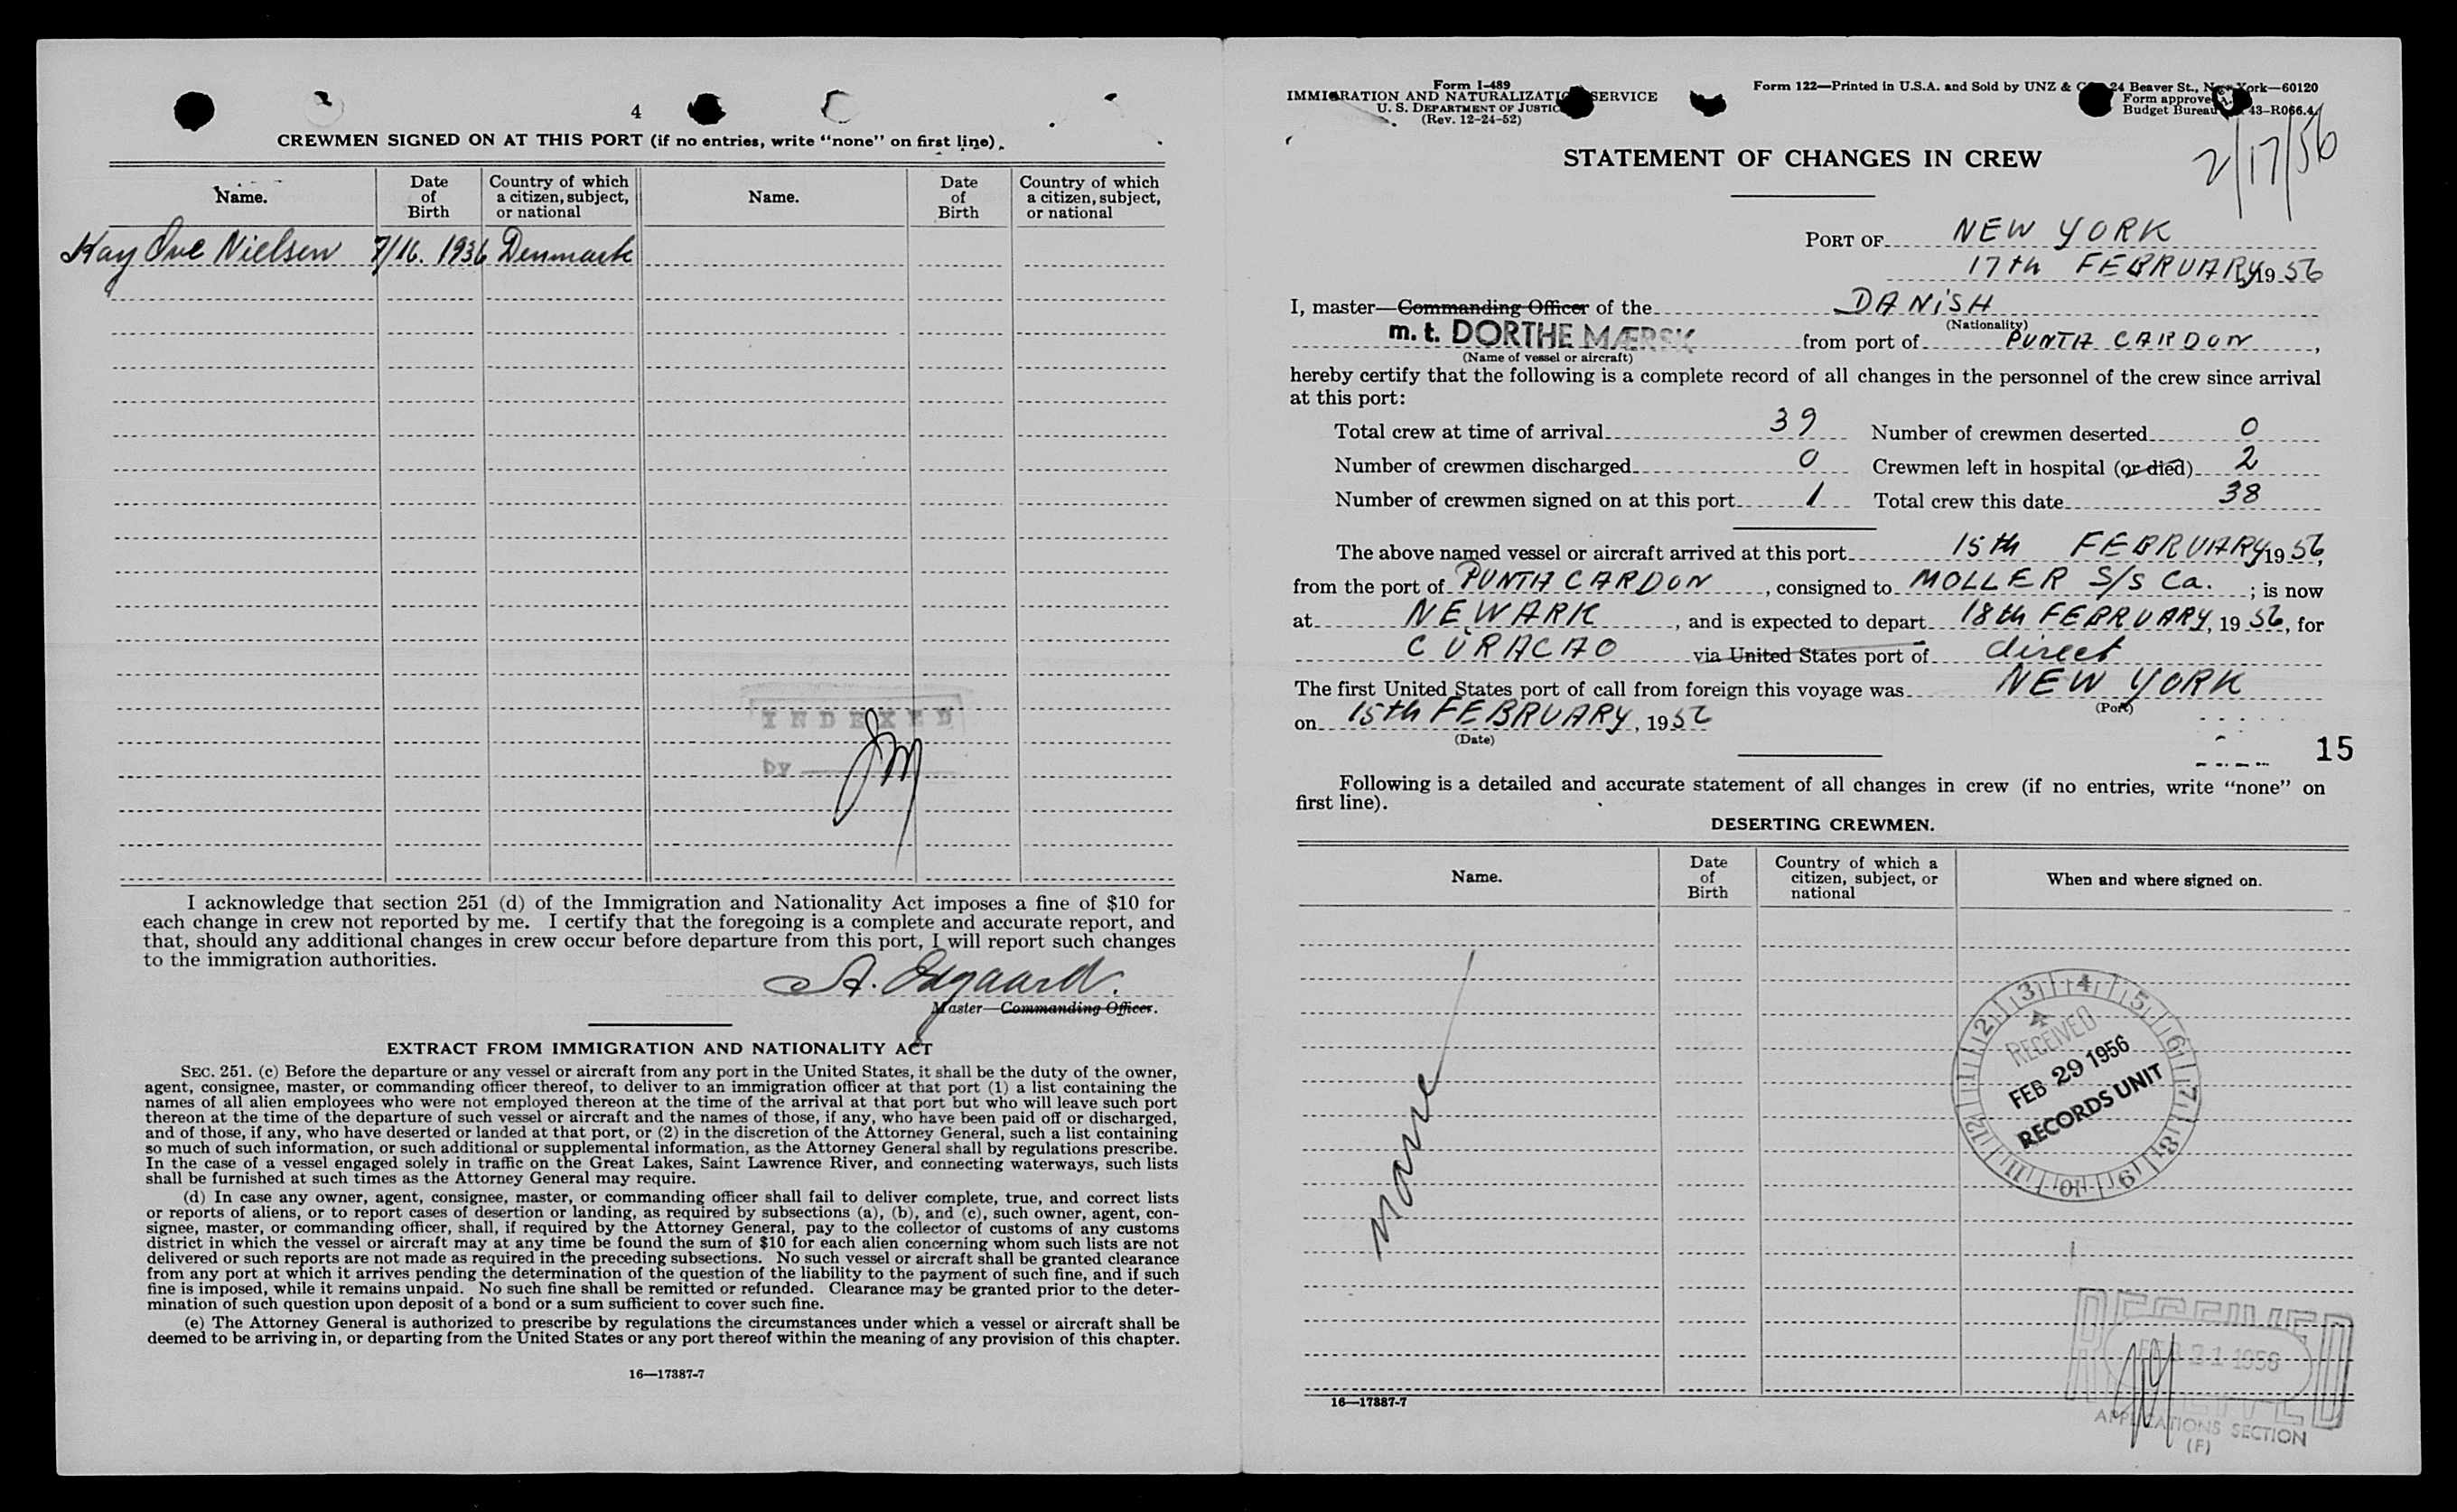 4
CREWMEN SIGNED ON AT THIS PORT (if no entries, write "none" on first line).
Name. Date of Birth Country of which a citizen, subject, or national Name. Date of Birth Country of which a citizen, subject, or national
Kay Ove Nielsen 7/16. 1936 Denmark
INDEXED
by
I acknowledge that section 251 (d) of the Immigration and Nationality Act imposes a fine of $10 for
each change in crew not reported by me. I certify that the foregoing is a complete and accurate report, and
that, should any additional changes in crew occur before departure from this port, I will report such changes
to the immigration authorities.
A. Odgaard.
Master—Commanding Officer.
EXTRACT FROM IMMIGRATION AND NATIONALITY ACT
SEC. 251. (c) Before the departure or any vessel or aircraft from any port in the United States, it shall be the duty of the owner,
agent, consignee, master, or commanding officer thereof, to deliver to an immigration officer at that port (1) a list containing the
names of all alien employees who were not employed thereon at the time of the arrival at that port but who will leave such port
thereon at the time of the departure of such vessel or aircraft and the names of those, if any, who have been paid off or discharged,
and of those, if any, who have deserted or landed at that port, or (2) in the discretion of the Attorney General, such a list containing
so much of such information, or such additional or supplemental information, as the Attorney General shall by regulations prescribe.
In the case of a vessel engaged solely in traffic on the Great Lakes, Saint Lawrence River, and connecting waterways, such lists
shall be furnished at such times as the Attorney General may require.
(d) In case any owner, agent, consignee, master, or commanding officer shall fail to deliver complete, true, and correct lists
or reports of aliens, or to report cases of desertion or landing, as required by subsections (a), (b), and (c), such owner, agent, con-
signee, master, or commanding officer, shall, if required by the Attorney General, pay to the collector of customs of any customs
district in which the vessel or aircraft may at any time be found the sum of $10 for each alien concerning whom such lists are not
delivered or such reports are not made as required in the preceding subsections. No such vessel or aircraft shall be granted clearance
from any port at which it arrives pending the determination of the question of the liability to the payment of such fine, and if such
fine is imposed, while it remains unpaid. No such fine shall be remitted or refunded. Clearance may be granted prior to the deter-
mination of such question upon deposit of a bond or a sum sufficient to cover such fine.
(e) The Attorney General is authorized to prescribe by regulations the circumstances under which a vessel or aircraft shall be
deemed to be arriving in, or departing from the United States or any port thereof within the meaning of any provision of this chapter.
16—17387-7
Form I-489
IMMIGRATION AND NATURALIZATION SERVICE
U. S. DEPARTMENT OF JUSTICE
(Rev. 12-24-52)
Form 122—Printed in U.S.A. and Sold by UNZ & 24 Beaver St., New York—60120
Form approved
Budget Bureau 43-R066.4
2/17/56
STATEMENT OF CHANGES IN CREW
PORT OF NEW YORK
17th FEBRUARY 1956
I, master—Commanding Officer of the DANISH
(Nationality)
m. t. DORTHE MÆRSK from port of PUNTA CARDON,
(Name of vessel or aircraft)
hereby certify that the following is a complete record of all changes in the personnel of the crew since arrival
at this port:
Total crew at time of arrival 39 Number of crewmen deserted 0
Number of crewmen discharged 0 Crewmen left in hospital (or died) 2
Number of crewmen signed on at this port 1 Total crew this date 38
The above named vessel or aircraft arrived at this port 15th FEBRUARY 1956,
from the port of PUNTA CARDON, consigned to MOLLER S/S Co.; is now
at NEWARK, and is expected to depart 18th FEBRUARY, 1956, for
CURACAO via United States port of direct
The first United States port of call from foreign this voyage was NEW YORK
(Port)
on 15th FEBRUARY, 1956
(Date)
15
Following is a detailed and accurate statement of all changes in crew (if no entries, write "none" on
first line).
DESERTING CREWMEN.
Name. Date of Birth Country of which a citizen, subject, or national When and where signed on.
None
1 2 3 4 5 6 7 8 9 10 11 12
RECEIVED
FEB 29 1956
RECORDS UNIT
RECEIVED
21 1956
APPLICATIONS SECTION
(F)
16—17387-7